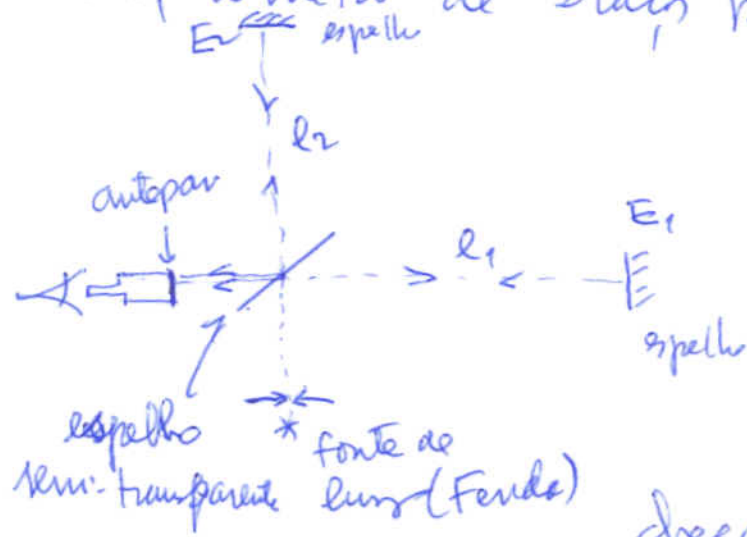 de
E₂ espelho
l₂
antepar
l₁
E₁
espelho
espelho
semi-transparente
fonte de
luz (Fenda)